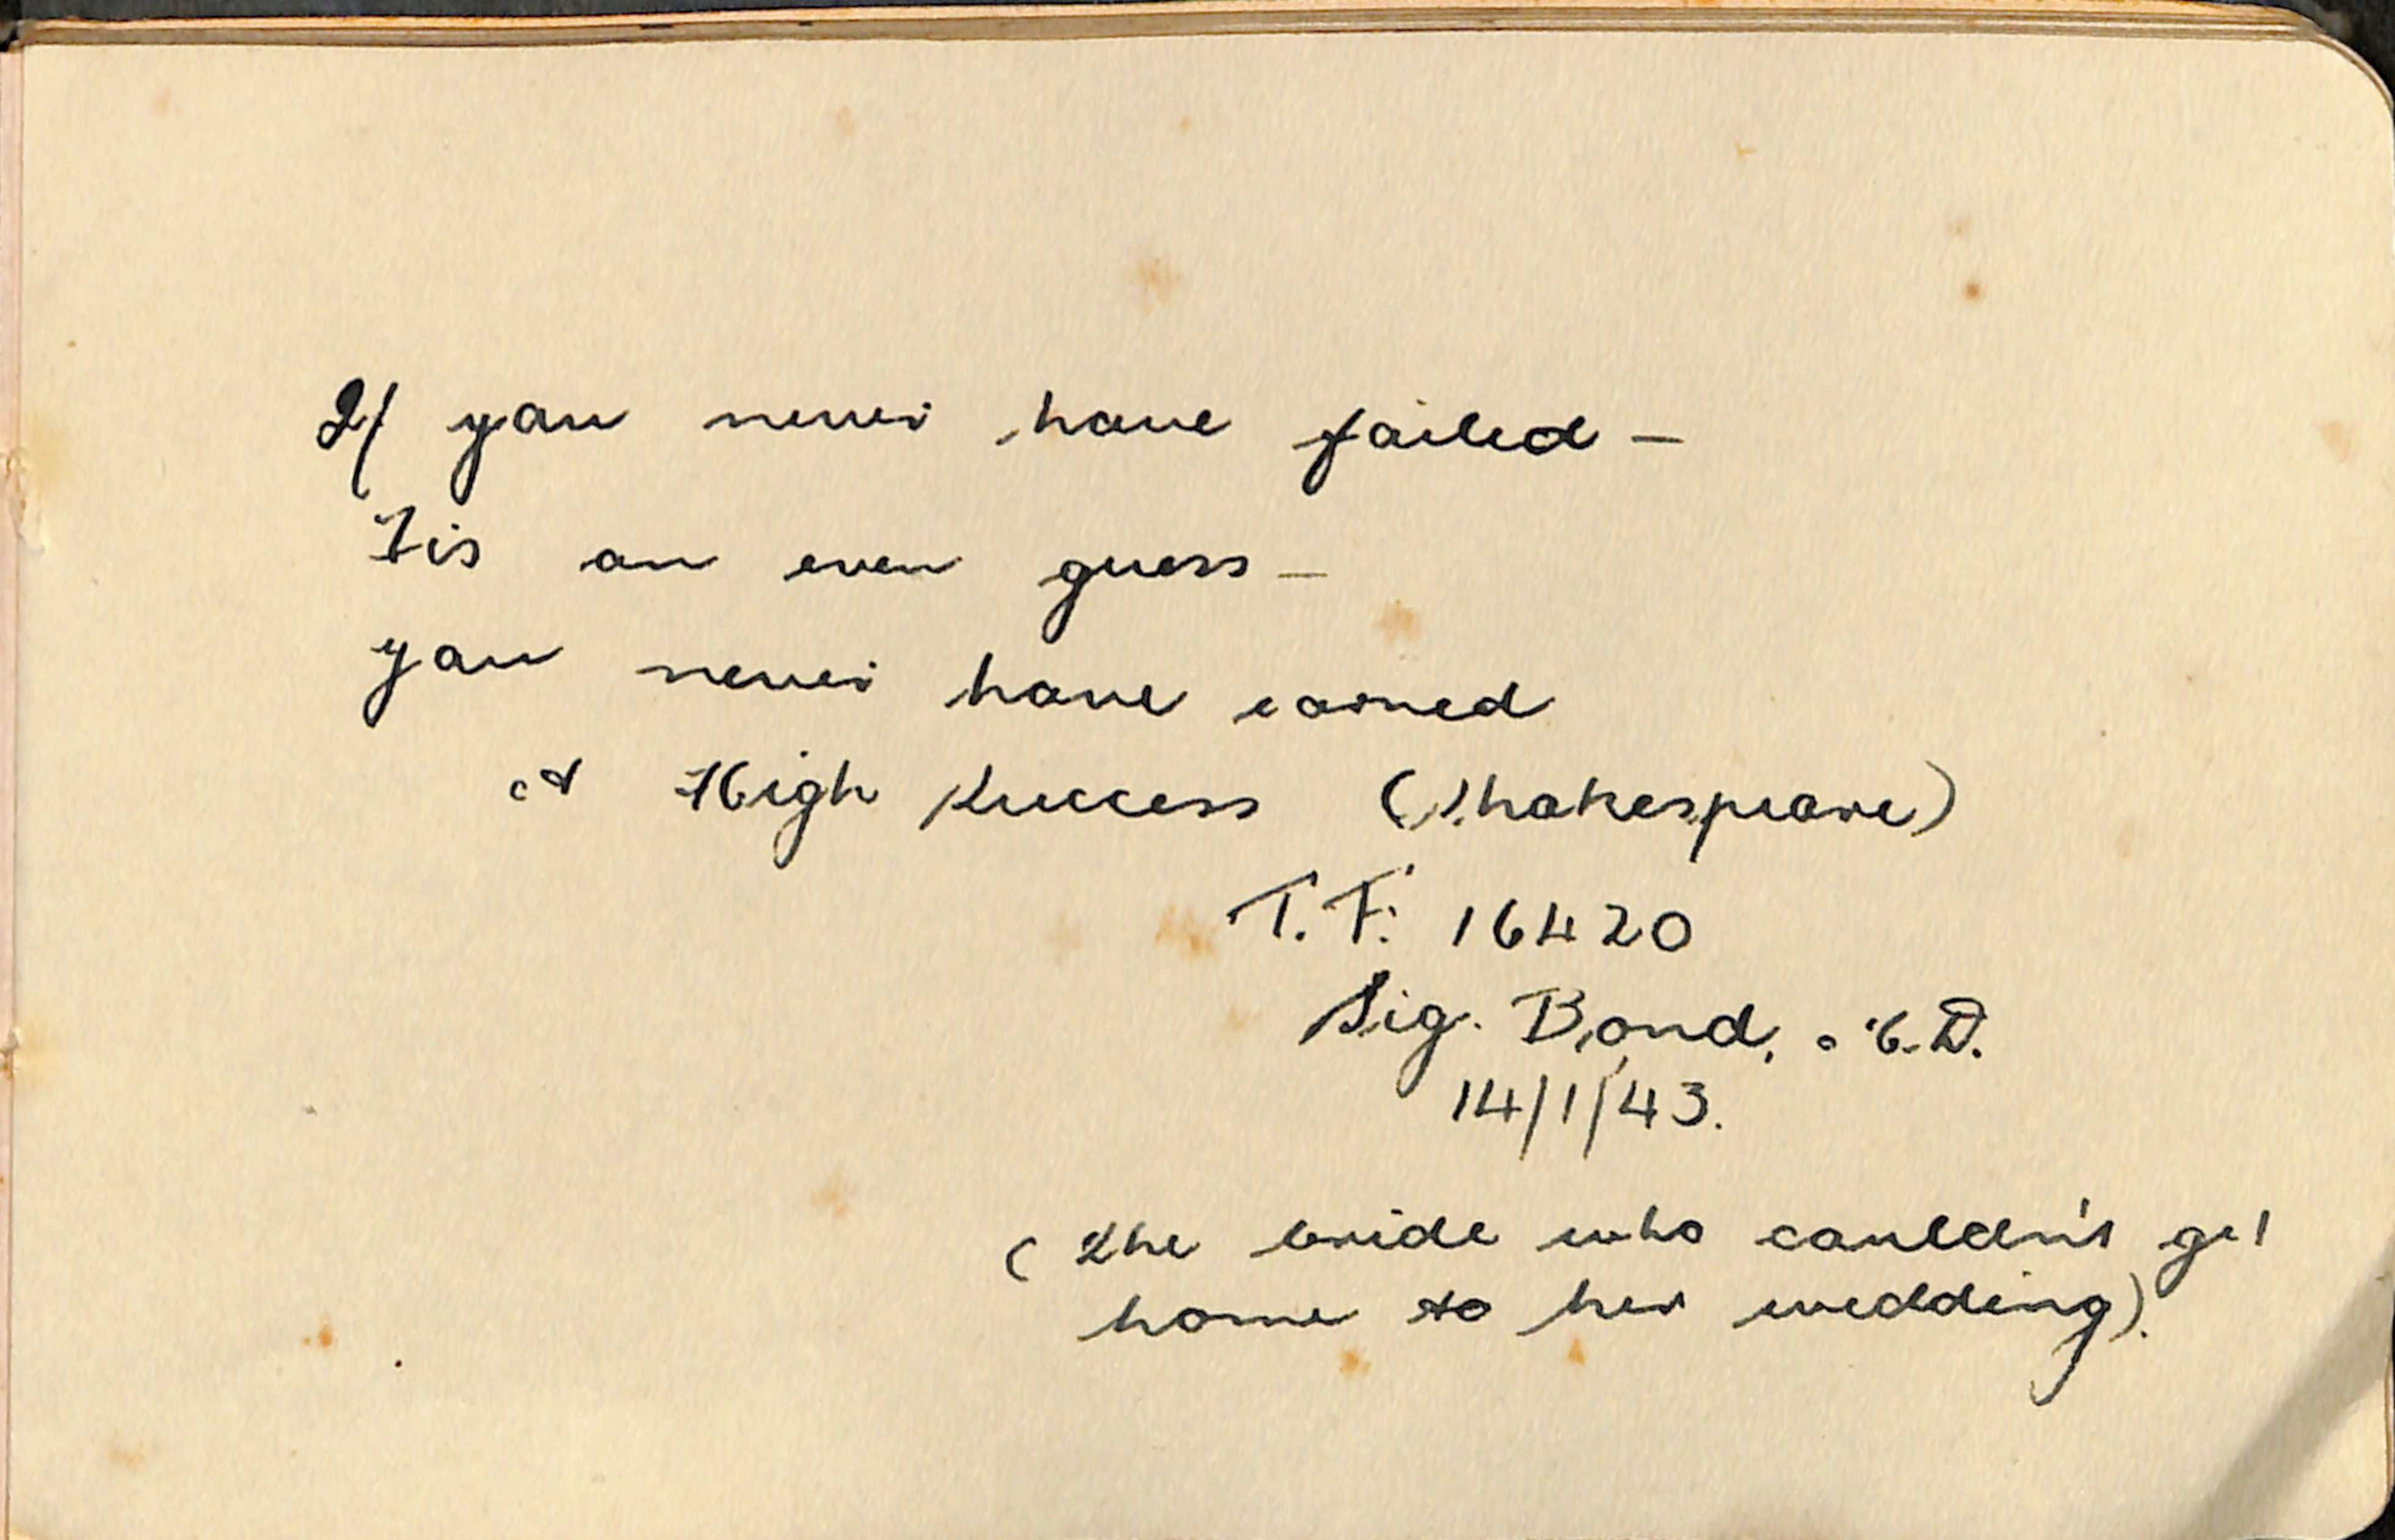 If you never have failed –
Tis an even guess –
you never have earned
A High Success (Shakespeare)
T.F. 16420
Sig. Bond,
14/1/43.
(The bride who couldn't get
home to her wedding).